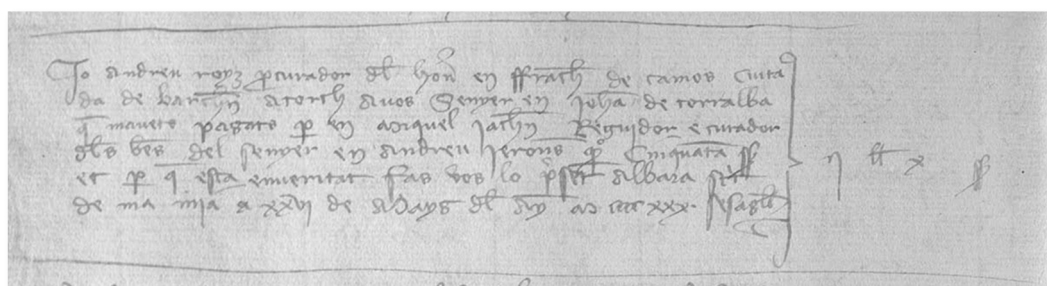 Jo Andreu royz pcurador dl hon en ffrach de camos Ciuta
da de barchn atorch auos Senyer en Joha de torralba
q mauets pagats p en Miquel Jachn Regidor e curador
dls bes del senyer en Andreu q Cinquata ss
et p q esta en veritat fas vos lo pset Albara
de ma mia a xxvi de Mayg dl Ay M cccc xxx
ij ll x ss